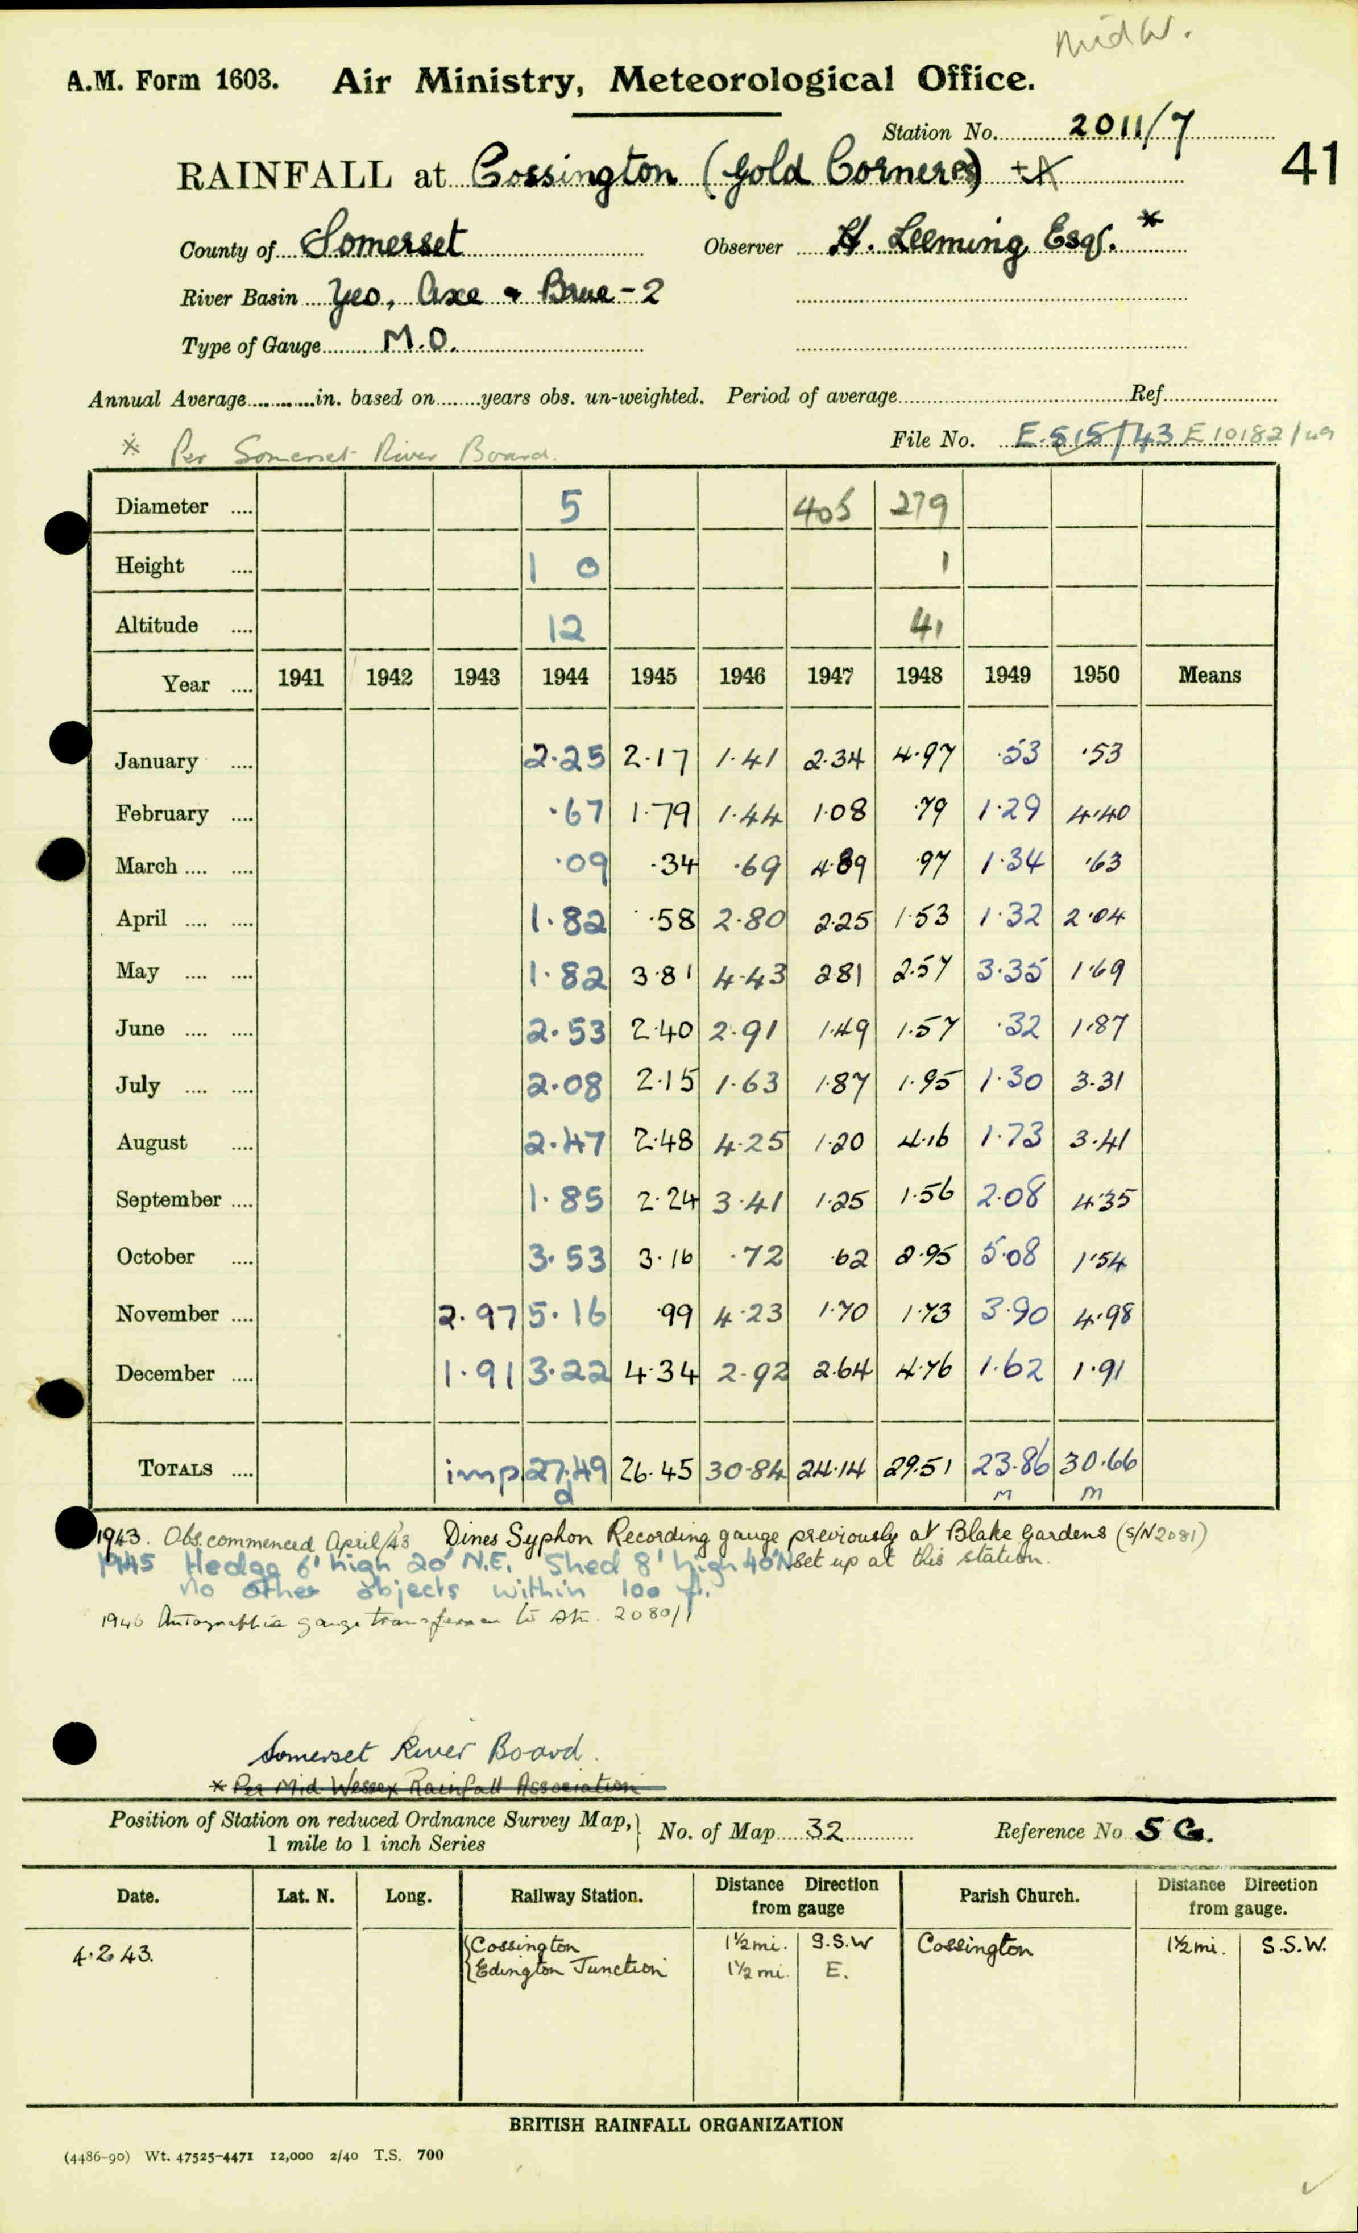 Mid W.
A.M. Form 1603. Air Ministry, Meteorological Office.
Station No. 2011/7
41
RAINFALL at Cossington (Gold Corner)
County of Somerset Observer H. Leeming Esq. *
River Basin Yeo, Axe & Brue - 2
Type of Gauge M.O.
Annual Average in. based on years obs. un-weighted. Period of average Ref
File No. E.515/43 E10182/49
* Per Somerset River Board.
Diameter 5 405 279
Height 1 0 1
Altitude 12 41
Year 1941 1942 1943 1944 1945 1946 1947 1948 1949 1950 Means
January 2.25 2.17 1.41 2.34 4.97 .53 .53
February .67 1.79 1.44 1.08 .79 1.29 4.40
March .09 .34 .69 4.89 .97 1.34 .63
April 1.82 .58 2.80 2.25 1.53 1.32 2.04
May 1.82 3.81 4.43 2.81 2.57 3.35 1.69
June 2.53 2.40 2.91 1.49 1.57 .32 1.87
July 2.08 2.15 1.63 1.87 1.95 1.30 3.31
August 2.47 2.48 4.25 1.20 4.16 1.73 3.41
September 1.85 2.24 3.41 1.25 1.56 2.08 4.35
October 3.53 3.16 .72 .62 2.95 5.08 1.54
November 2.97 5.16 .99 4.23 1.70 1.73 3.90 4.98
December 1.91 3.22 4.34 2.92 2.64 4.76 1.62 1.91
TOTALS imp 27.49 26.45 30.84 24.14 29.51 23.86 30.66
a m m
1943. Obs. commenced April/43 Dines Syphon Recording gauge previously at Blake Gardens (S/N 2081)
set up at this station.
1945 Hedge 6' high 20' N.E. Shed 8' high 40'N
No other objects within 100 ft.
1946 Autographic gauge transferred to stn. 2080/1
Somerset River Board.
* Per Mid Wessex Rainfall Association
Position of Station on reduced Ordnance Survey Map, 1 mile to 1 inch Series No. of Map 32 Reference No 5 G.
Date. Lat. N. Long. Railway Station. Distance Direction from gauge Parish Church. Distance Direction from gauge.
4.2.43. Cossington 1½ mi. S.S.W Cossington 1½ mi. S.S.W.
Edington Junction 1½ mi. E.
BRITISH RAINFALL ORGANIZATION
(4486-90) Wt. 47525-4471 12,000 2/40 T.S. 700